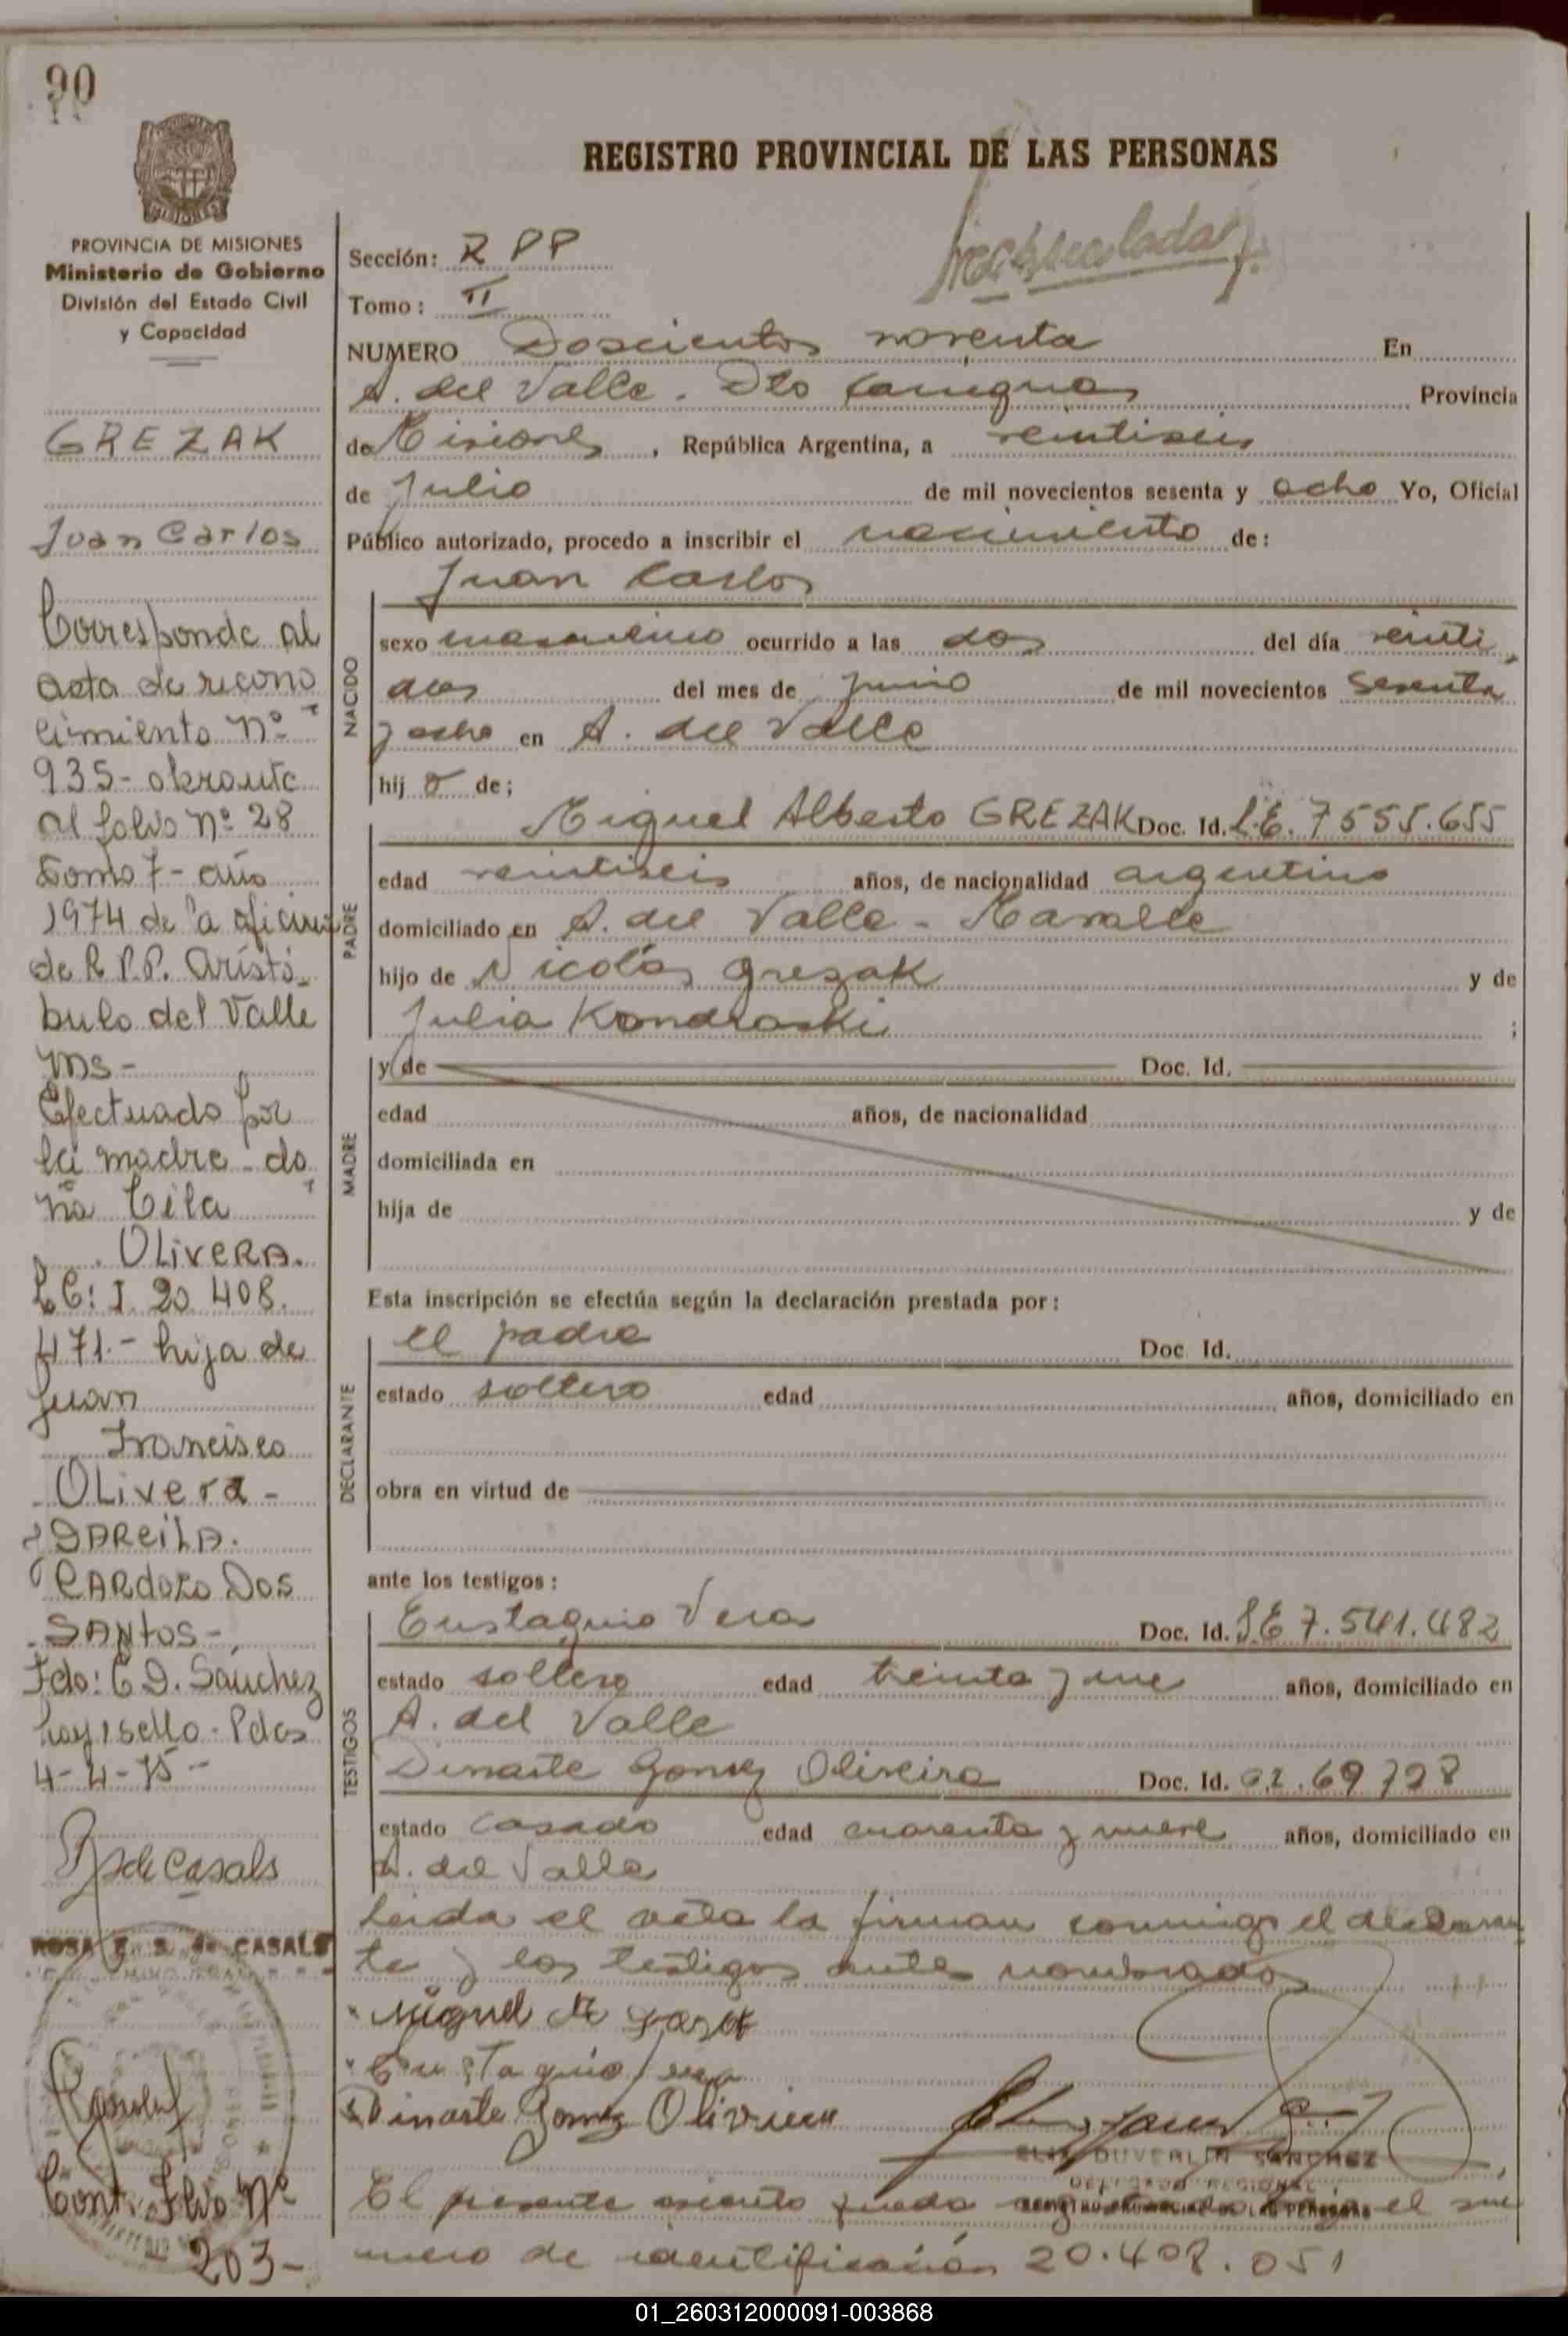 90
REGISTRO PROVINCIAL DE LAS PERSONAS
PROVINCIA DE MISIONES
Ministerio de Gobierno
División del Estado Civil
y Capacidad
GREZAK
Juan Carlos
Corresponde al
acta de recono
cimiento Nº
935- obrante
al folio Nº 28
Tomo 7- año
1974 de la oficina
de R.P.P. Aristó-
bulo del Valle
Ms-
Efectuado por
la madre do
ña Cila
OLIVERA.
LC: I 20 408.
471.- hija de
Juan
Francisco
OLivera-
y DARCILA.
CARDOZO DOS
SANTOS-
Fdo: E D. Sánchez
hay 1 sello- Pdas
4-4-75-
R de Casals
ROSA E. S. de CASALS
Cont. Flio Nº
203-
Sección: R P P
Tomo: II
NUMERO Doscientos noventa En
A. del Valle. Dto Cainguas Provincia
de Misiones, República Argentina, a veintiseis
de Julio de mil novecientos sesenta y ocho Yo, Oficial
Público autorizado, procedo a inscribir el nacimiento de:
Juan Carlos
NACIDO
sexo masculino ocurrido a las dos del día veinti
dos del mes de junio de mil novecientos sesenta
y ocho en A. del Valle
hijo de;
PADRE
Miguel Alberto GREZAK Doc. Id. L.E. 7555.655
edad veintiseis años, de nacionalidad argentino
domiciliado en A. del Valle -
hijo de Nicolás Grezak y de
Julia Kondraski ;
MADRE
y de Doc. Id.
edad años, de nacionalidad
domiciliada en
hija de y de
Esta inscripción se efectúa según la declaración prestada por:
DECLARANTE
el padre Doc. Id.
estado soltero edad años, domiciliado en
obra en virtud de
ante los testigos:
TESTIGOS
Eustaquio Vera Doc. Id. L.E 7.541.482
estado soltero edad treinta y años, domiciliado en
A. del Valle
Dinarte Gomez Oliveira Doc. Id. 02.69728
estado casado edad cuarenta y nueve años, domiciliado en
A. del Valle
Leida el acta la firman conmigo el declaran
te y los testigos antes nombrados
Miguel A
Eustaquio Vera
Dinarte Gomez Olivieira
DUVERLIN SANCHEZ
DELEGADO REGIONAL
REGISTRO PROVINCIAL DE LAS PERSONAS
El presente asiento queda bajo el nú
mero de identificación 20.408.051
01_260312000091-003868